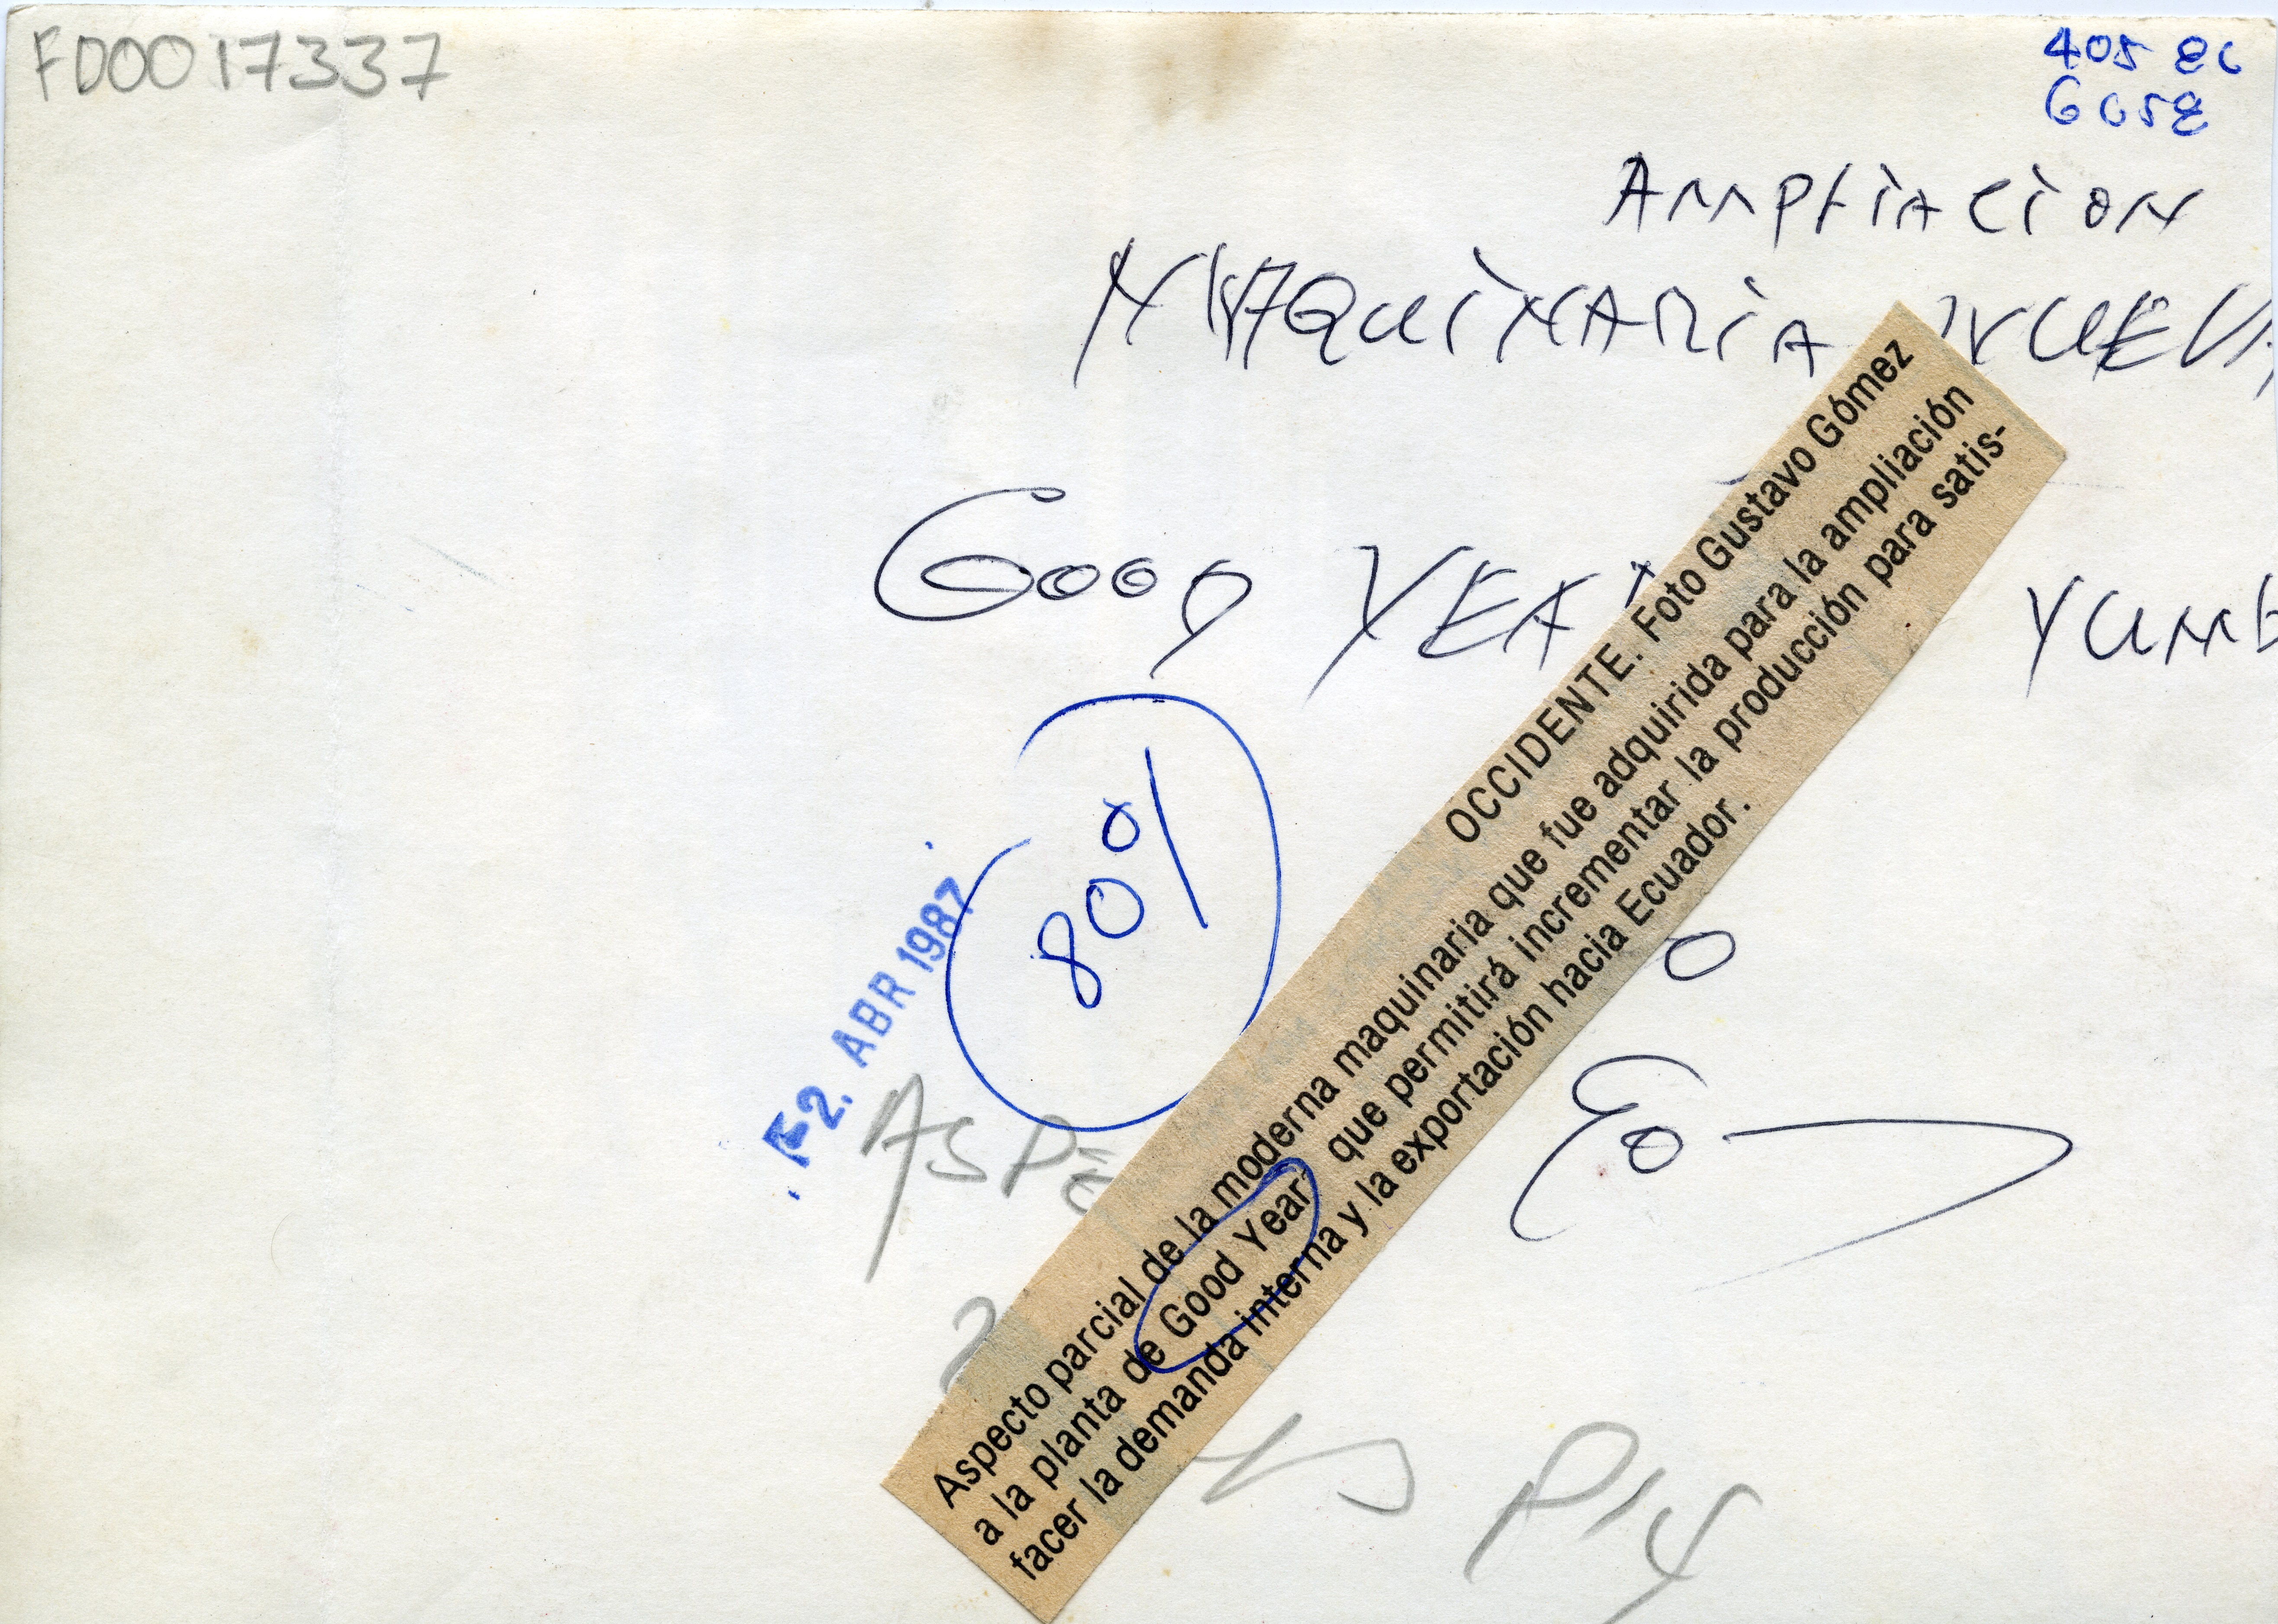 FD0017337
405 86
6058
AMPLIACION
MAQUINARIA NUEVA
GOOD YEAR YUMB
OCCIDENTE. Foto Gustavo Gómez
Aspecto parcial de la moderna maquinaria que fue adquirida para la ampliación
a la planta de Good Year, que permitirá incrementar la producción para satis-
facer la demanda interna y la exportación hacia Ecuador.
80%
2. ABR 1987
ASPE
P14